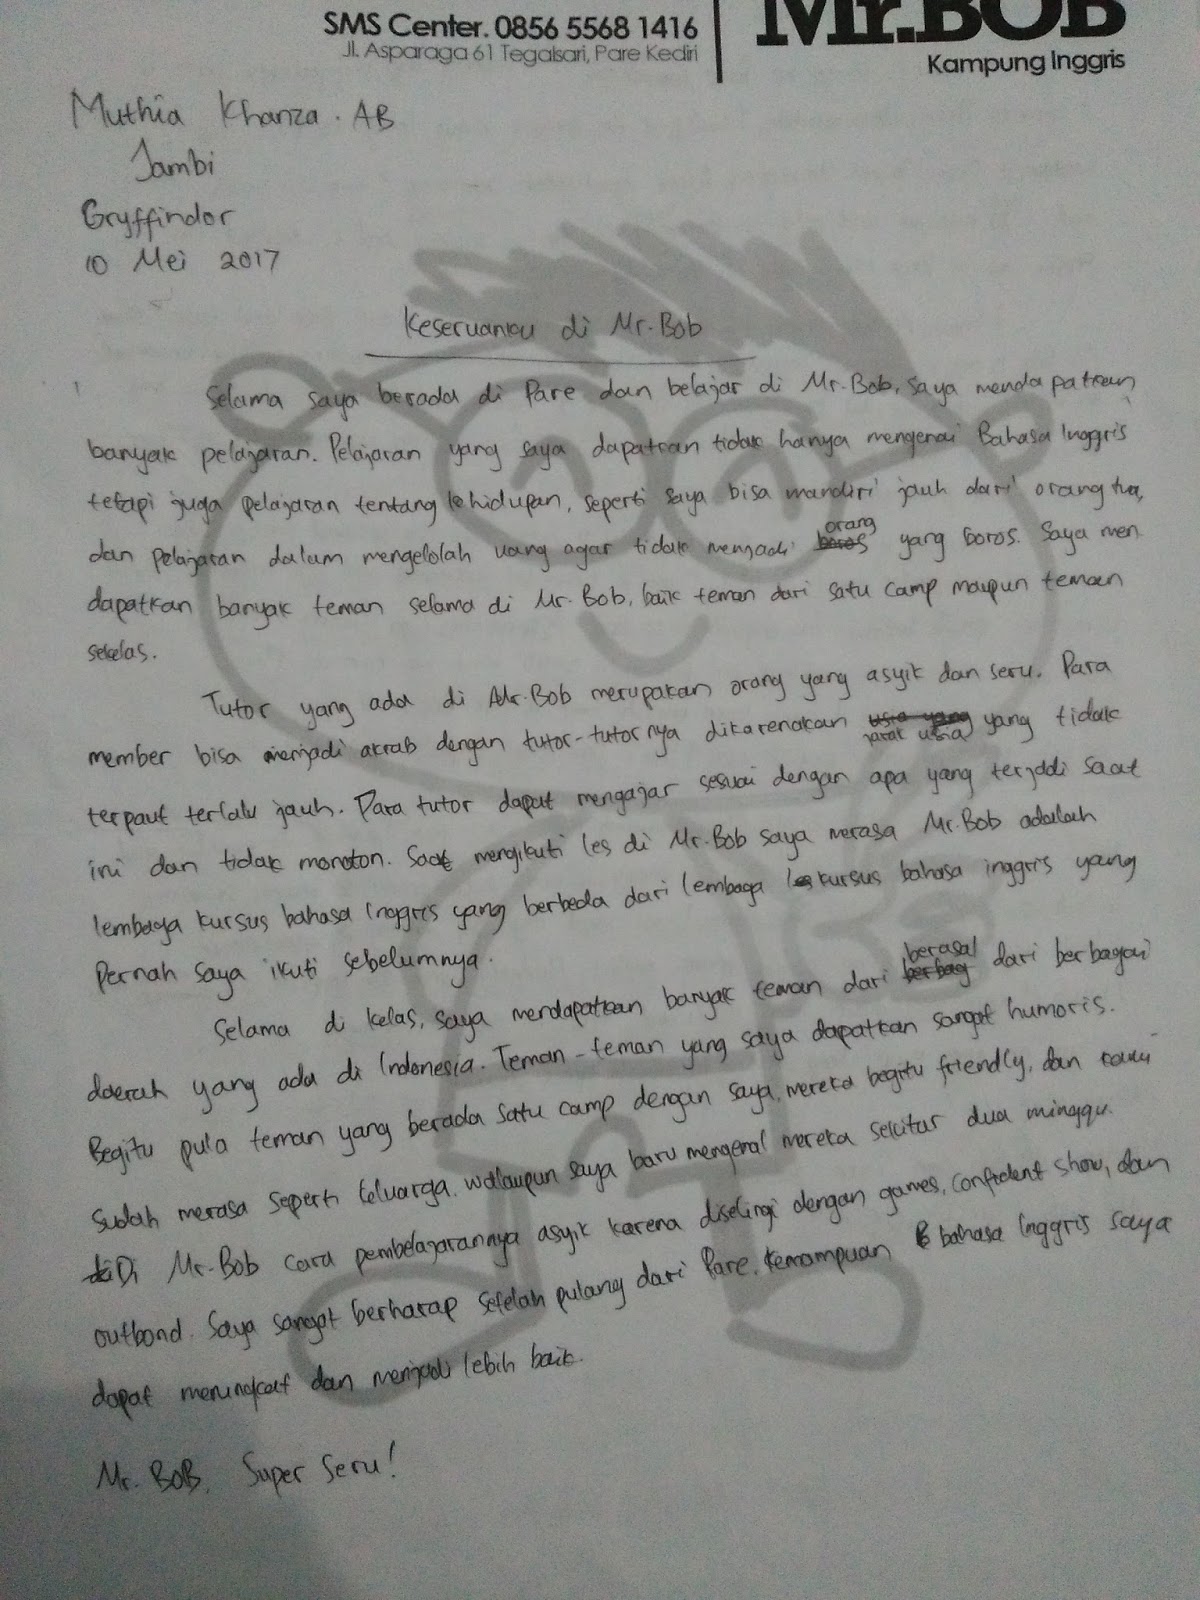 SMS Center. 0856 5568 1416
Jl. Asparaga 61 Tegalsari, Pare Kediri
Mr.BOB
Kampung Inggris
Muthia Khanza. AB
Jambi
Gryffindor
10 Mei 2017
Keseruanku di Mr.Bob
Selama saya berada di Pare dan belajar di Mr.Bob, saya mendapatkan
banyak pelajaran. Pelajaran yang saya dapatkan tidak hanya mengenai Bahasa Inggris
tetapi juga pelajaran tentang kehidupan, seperti saya bisa mandiri jauh dari orang tua,
dan pelajaran dalam mengelolah uang agar tidak menjadi boros orang yang boros. Saya men
dapatkan banyak teman selama di Mr. Bob, baik teman dari satu camp maupun teman
sekelas.
Tutor yang ada di Mr.Bob merupakan orang yang asyik dan seru. Para
member bisa menjadi akrab dengan tutor-tutornya dikarenakan usia yang jarak usia yang tidak
terpaut terlalu jauh. Para tutor dapat mengajar sesuai dengan apa yang terjadi saat
ini dan tidak monoton. Saat mengikuti les di Mr.Bob saya merasa Mr.Bob adalah
lembaga kursus bahasa Inggris yang berbeda dari lembaga kursus bahasa inggris yang
Pernah saya ikuti sebelumnya.
Selama di kelas, saya mendapatkan banyak teman dari berbag berasal dari berbagai
daerah yang ada di Indonesia. Teman-teman yang saya dapatkan sangat humoris.
Begitu pula teman yang berada satu camp dengan saya, mereka begitu friendly, dan kami
sudah merasa seperti keluarga, walaupun saya baru mengenal mereka sekitar dua minggu.
Di Mr.Bob cara pembelajarannya asyik karena diselingi dengan games, confident show, dan
outbond. Saya sangat berharap setelah pulang dari Pare, kemampuan bahasa Inggris saya
dapat meningkat dan menjadi lebih baik.
Mr. BOB, Super Seru!